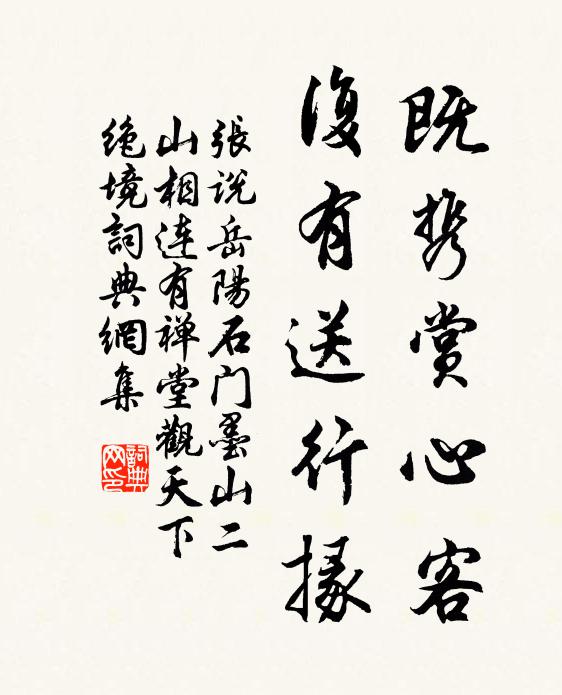 既携赏心客
復有送行掾
張说岳陽石门墨山二
山相连有禅堂觀天下
绝境詞典網集
詞典网印